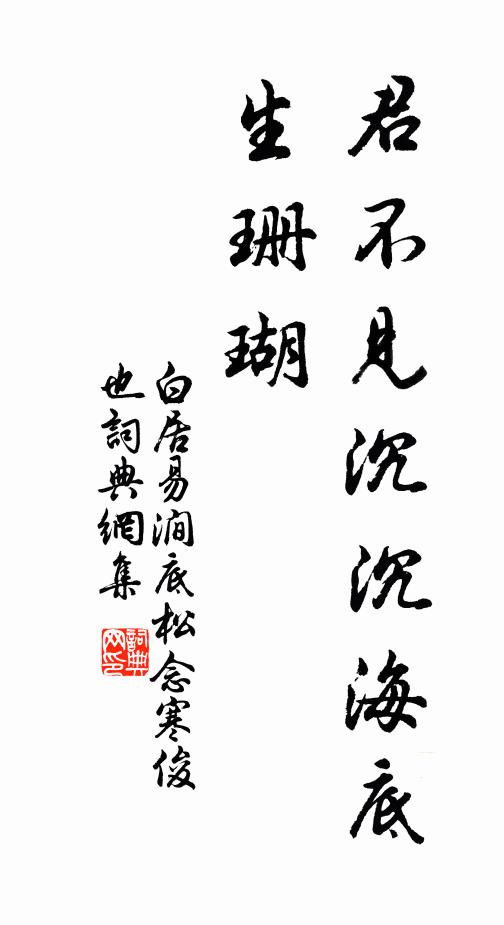 君不見沉沉海底
生珊瑚
白居易澗底松念寒俊
也詞典網集
詞典
网印